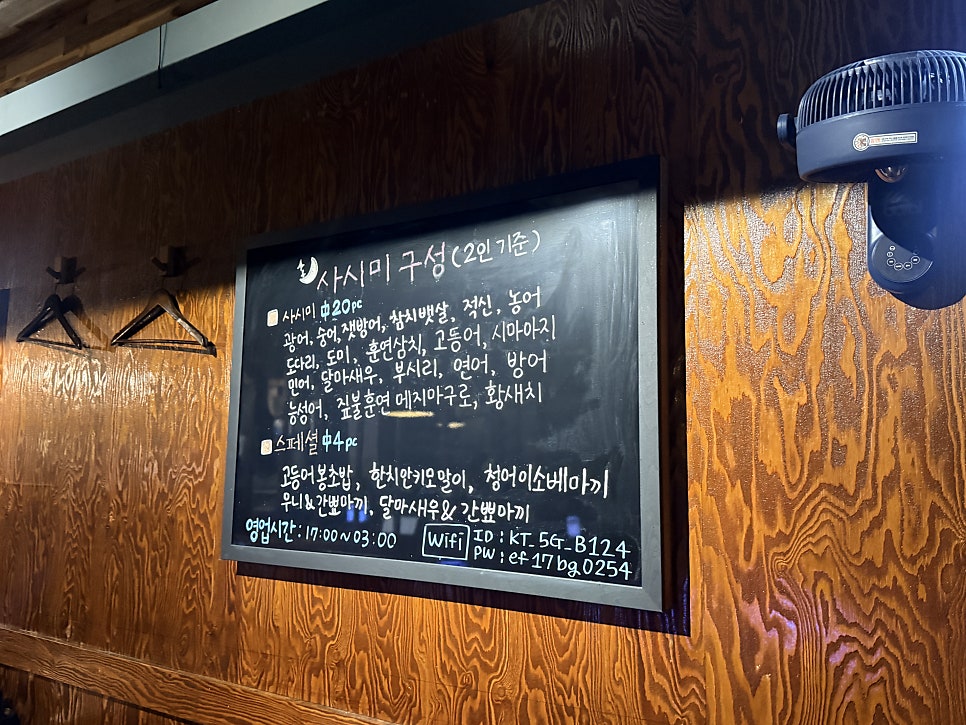 사시미 구성 (2인 기준)
사시미 中20pc
광어, 숭어, 잿방어, 참치뱃살, 적신, 농어
도다리, 도미, 훈연삼치, 고등어, 시마아지
민어, 달마새우, 부시리, 연어, 방어
능성어, 짚불훈연 메지마구로, 황새치
스페셜 中4pc
고등어봉초밥, 한치안키모말이, 청어이소베마끼
우니&간뾰마끼, 달마새우& 간뾰마끼
영업시간 : 17:00~03:00
Wifi ID : KT_5G_B124
PW : ef17bg0254